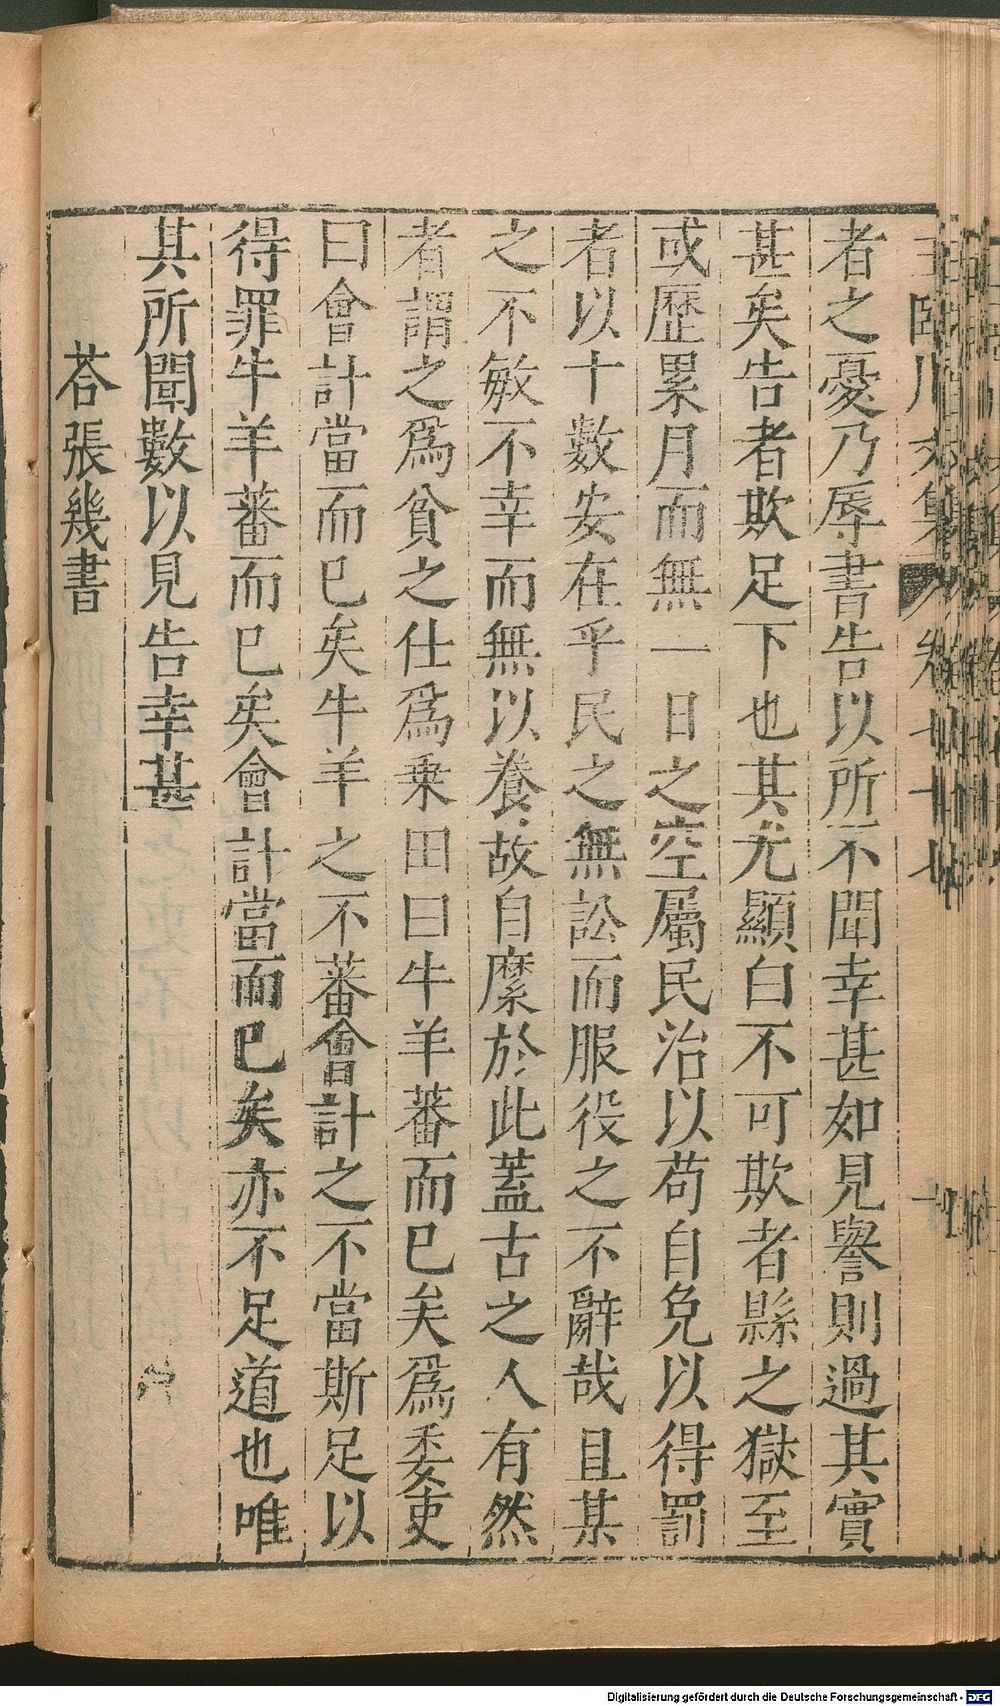 者之憂乃辱書告以所不聞幸甚如見譽則過其實
甚矣告者欺足下也其尤顯白不可欺者縣之獄至
或歷累月而無一日之空屬民治以苟自免以得罰
者以十數安在乎民之無訟而服役之不辭哉且某
之不敏不幸而無以養故自縻於此蓋古之人有然
者謂之爲貧之仕爲乗田曰牛羊蕃而已矣爲委吏
曰會計當而已矣牛羊之不蕃會計之不當斯足以
得罪牛羊蕃而已矣會計當而已矣亦不足道也唯
其所聞數以見告幸甚
荅張幾書
Digitalisierung gefördert durch die Deutsche Forschungsgemeinschaft - DFG